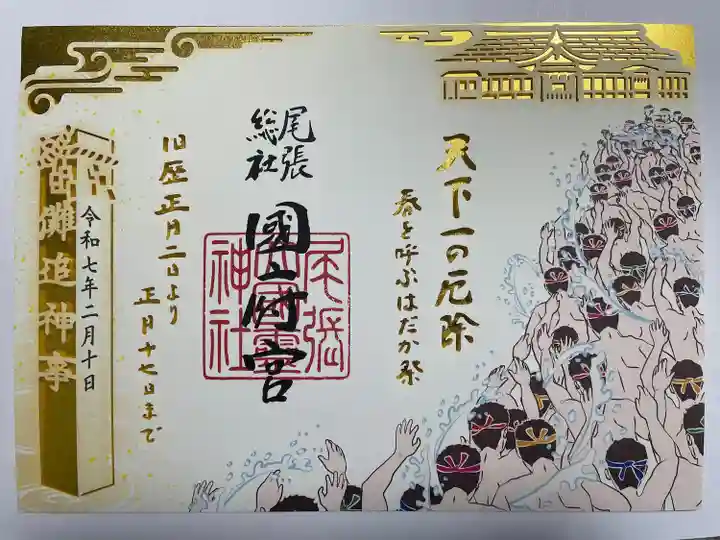 天下一の厄除
春を呼ぶはだか祭
尾張
総社
國府宮
尾張
大國霊
神社
旧歴正月二日より
正月十七日まで
令和七年二月十日
儺追神事